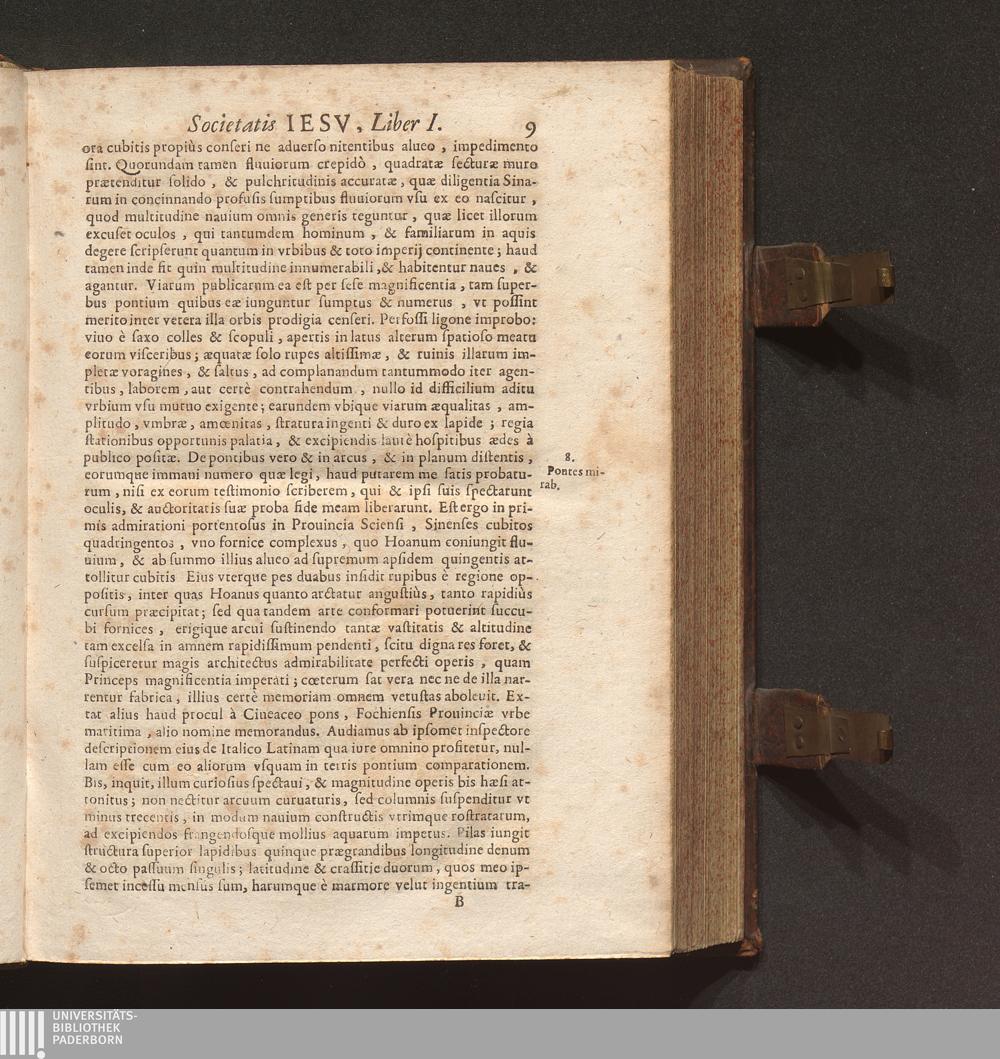 Societatis IESV, Liber I. 9
ora cubitis propiùs conseri ne aduerso nitentibus alueo, impedimento
sint. Quorundam tamen fluuiorum crepido, quadratæ secturæ muro
prætenditur solido, & pulchritudinis accuratæ, quæ diligentia Sina-
rum in concinnando profusis sumptibus fluuiorum vsu ex eo nascitur,
quod multitudine nauium omnis generis teguntur, quæ licet illorum
excuset oculos, qui tantumdem hominum, & familiarum in aquis
degere scripserunt quantum in vrbibus & toto imperij continente; haud
tamen inde fit quin multitudine innumerabili, & habitentur naues, &
agantur. Viarum publicarum ea est per sese magnificentia, tam super-
bus pontium quibus eæ iunguntur sumptus & numerus, vt possint
merito inter vetera illa orbis prodigia censeri. Perfossi ligone improbo:
viuo è saxo colles & scopuli, apertis in latus alterum spatioso meatu
eorum visceribus; æquatæ solo rupes altissimæ, & ruinis illarum im-
pletæ voragines, & saltus, ad complanandum tantummodo iter agen-
tibus, laborem, aut certè contrahendum, nullo id difficilium aditu
vrbium vsu mutuo exigente; earundem vbique viarum æqualitas, am-
plitudo, vmbræ, amœnitas, stratura ingenti & duro ex lapide; regia
stationibus opportunis palatia, & excipiendis lautè hospitibus ædes à
publico positæ. De pontibus vero & in arcus, & in planum distentis,
eorumque immani numero quæ legi, haud putarem me satis probatu-
rum, nisi ex eorum testimonio scriberem, qui & ipsi suis spectarunt
oculis, & auctoritatis suæ proba fide meam liberarunt. Est ergo in pri-
mis admirationi portentosus in Prouincia Sciensi, Sinenses cubitos
quadringentos, vno fornice complexus, quo Hoanum coniungit flu-
uium, & ab summo illius alueo ad supremum apsidem quingentis at-
tollitur cubitis Eius vterque pes duabus insidit rupibus è regione op-
positis, inter quas Hoanus quanto arctatur angustiùs, tanto rapidiùs
cursum præcipitat; sed qua tandem arte conformari potuerint succu-
bi fornices, erigique arcui sustinendo tantæ vastitatis & altitudine
tam excelsa in amnem rapidissimum pendenti, scitu digna res foret, &
suspiceretur magis architectus admirabilitate perfecti operis, quam
Princeps magnificentia imperati; cœterum sat vera nec ne de illa nar-
rentur fabrica, illius certè memoriam omnem vetustas aboleuit. Ex-
tat alius haud procul à Ciueaceo pons, Fochiensis Prouinciæ vrbe
maritima, alio nomine memorandus. Audiamus ab ipsomet inspectore
descriptionem eius de Italico Latinam qua iure omnino profitetur, nul-
lam esse cum eo aliorum vsquam in terris pontium comparationem.
Bis, inquit, illum curiosius spectaui, & magnitudine operis bis hæsi at-
tonitus; non nectitur arcuum curuaturis, sed columnis suspenditur vt
minus trecentis, in modum nauium constructis vtrimque rostratarum,
ad excipiendos frangendosque mollius aquarum impetus. Pilas iungit
structura superior lapidibus quinque prægrandibus longitudine denum
& octo passuum singulis; latitudine & crassitie duorum, quos meo ip-
semet incessu mensus sum, harumque è marmore velut ingentium tra-
B
8.
Pontes mi-
rab.
UNIVERSITÄTS-
BIBLIOTHEK
PADERBORN